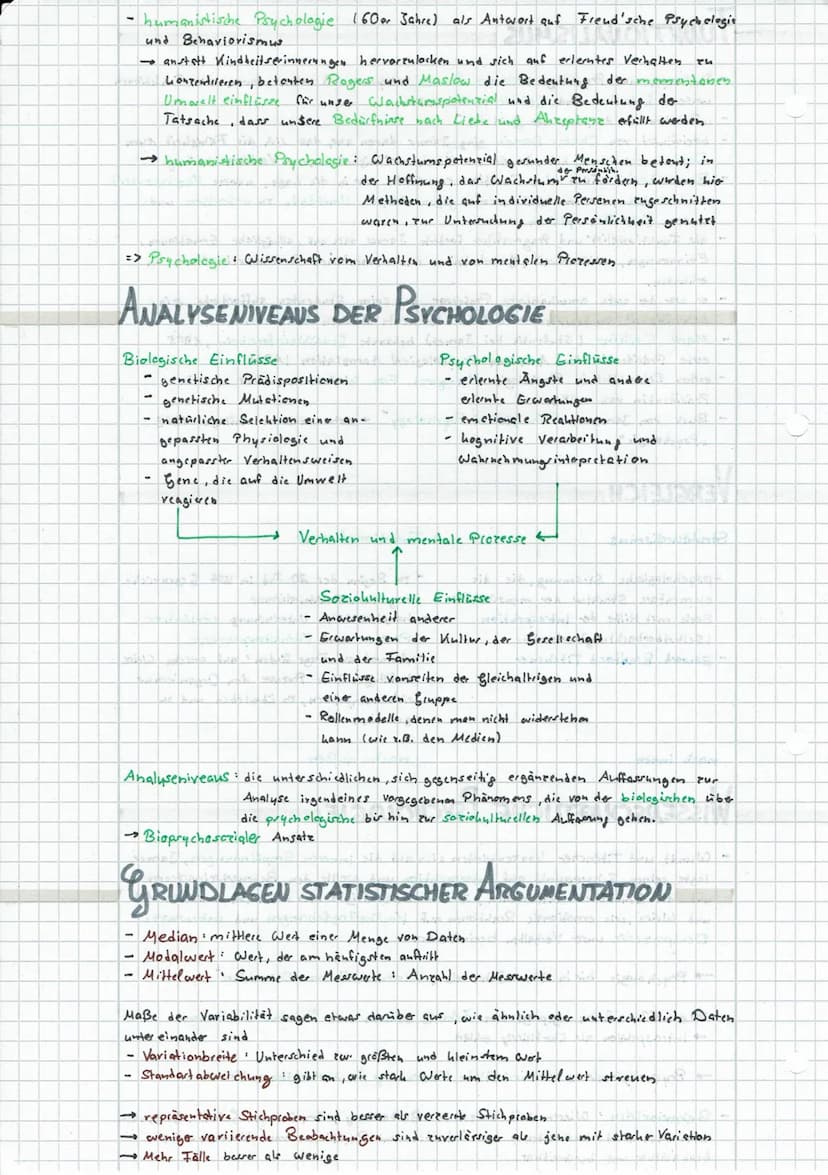 - humanistische Psychologie (60er Jahre) als Antwort auf Freud'sche Psychologie
und Behaviorismus
→ anstatt Kindheitserinnerungen hervorzulocken und sich auf erlerntes Verhalten zu
konzentrieren, betonten Rogers und Maslow die Bedeutung der momentanen
Umwelteinflüsse für unser Wachstumspotenzial und die Bedeutung der
Tatsache, dass unsere Bedürfnisse nach Liebe und Akzeptanz erfüllt werden
→ humanistische Psychologie: Wachstumspotenzial gesunder Menschen betont; in
der Persönlk.
der Hoffnung, das Wachstum zu fördern, wurden hier
Methoden, die auf individuelle Personen zugeschnitten
waren, zur Untersuchung der Persönlichkeit genutzt
=> Psychologie: Wissenschaft vom Verhalten und von mentalen Prozessen
ANALYSENIVEAUS DER PSYCHOLOGIE
Biologische Einflüsse
- genetische Prädispositionen
- genetische Mutationen
- natürliche Selektion einer an-
gepassten Physiologie und
angepasster Verhaltensweisen
- Gene, die auf die Umwelt
reagieren
Psychologische Einflüsse
- erlernte Ängste und andere
erlernte Erwartungen
- emotionale Reaktionen
- kognitive Verarbeitung und
Wahrnehmungsinterpretation
Verhalten und mentale Prozesse
Soziokulturelle Einflüsse
- Anwesenheit anderer
- Erwartungen der Kultur, der Gesellschaft
und der Familie
- Einflüsse vonseiten der Gleichaltrigen und
einer anderen Gruppe
- Rollenmodelle, denen man nicht widerstehen
kann (wie z.B. den Medien)
Analyseniveaus: die unterschiedlichen, sich gegenseitig ergänzenden Auffassungen zur
Analyse irgendeines vorgegebenen Phänomens, die von der biologischen über
die psychologische bis hin zur soziokulturellen Auffassung gehen.
→ Biopsychosozialer Ansatz
GRUNDLAGEN STATISTISCHER ARGUMENTATION
- Median: mittlere Wert einer Menge von Daten
- Modalwert: Wert, der am häufigsten auftritt
- Mittelwert: Summe der Messwerte : Anzahl der Messwerte
Maße der Variabilität sagen etwas darüber aus, wie ähnlich oder unterschiedlich Daten
untereinander sind
- Variationbreite: Unterschied zw. größten und kleinstem Wert
- Standartabweichung: gibt an, wie stark Werte um den Mittelwert streuen
→ repräsentative Stichproben sind besser als verzerrte Stichproben
→ weniger variierende Beobachtungen sind zuverlässiger als jene mit starker Variation
→ Mehr Fälle besser als wenige